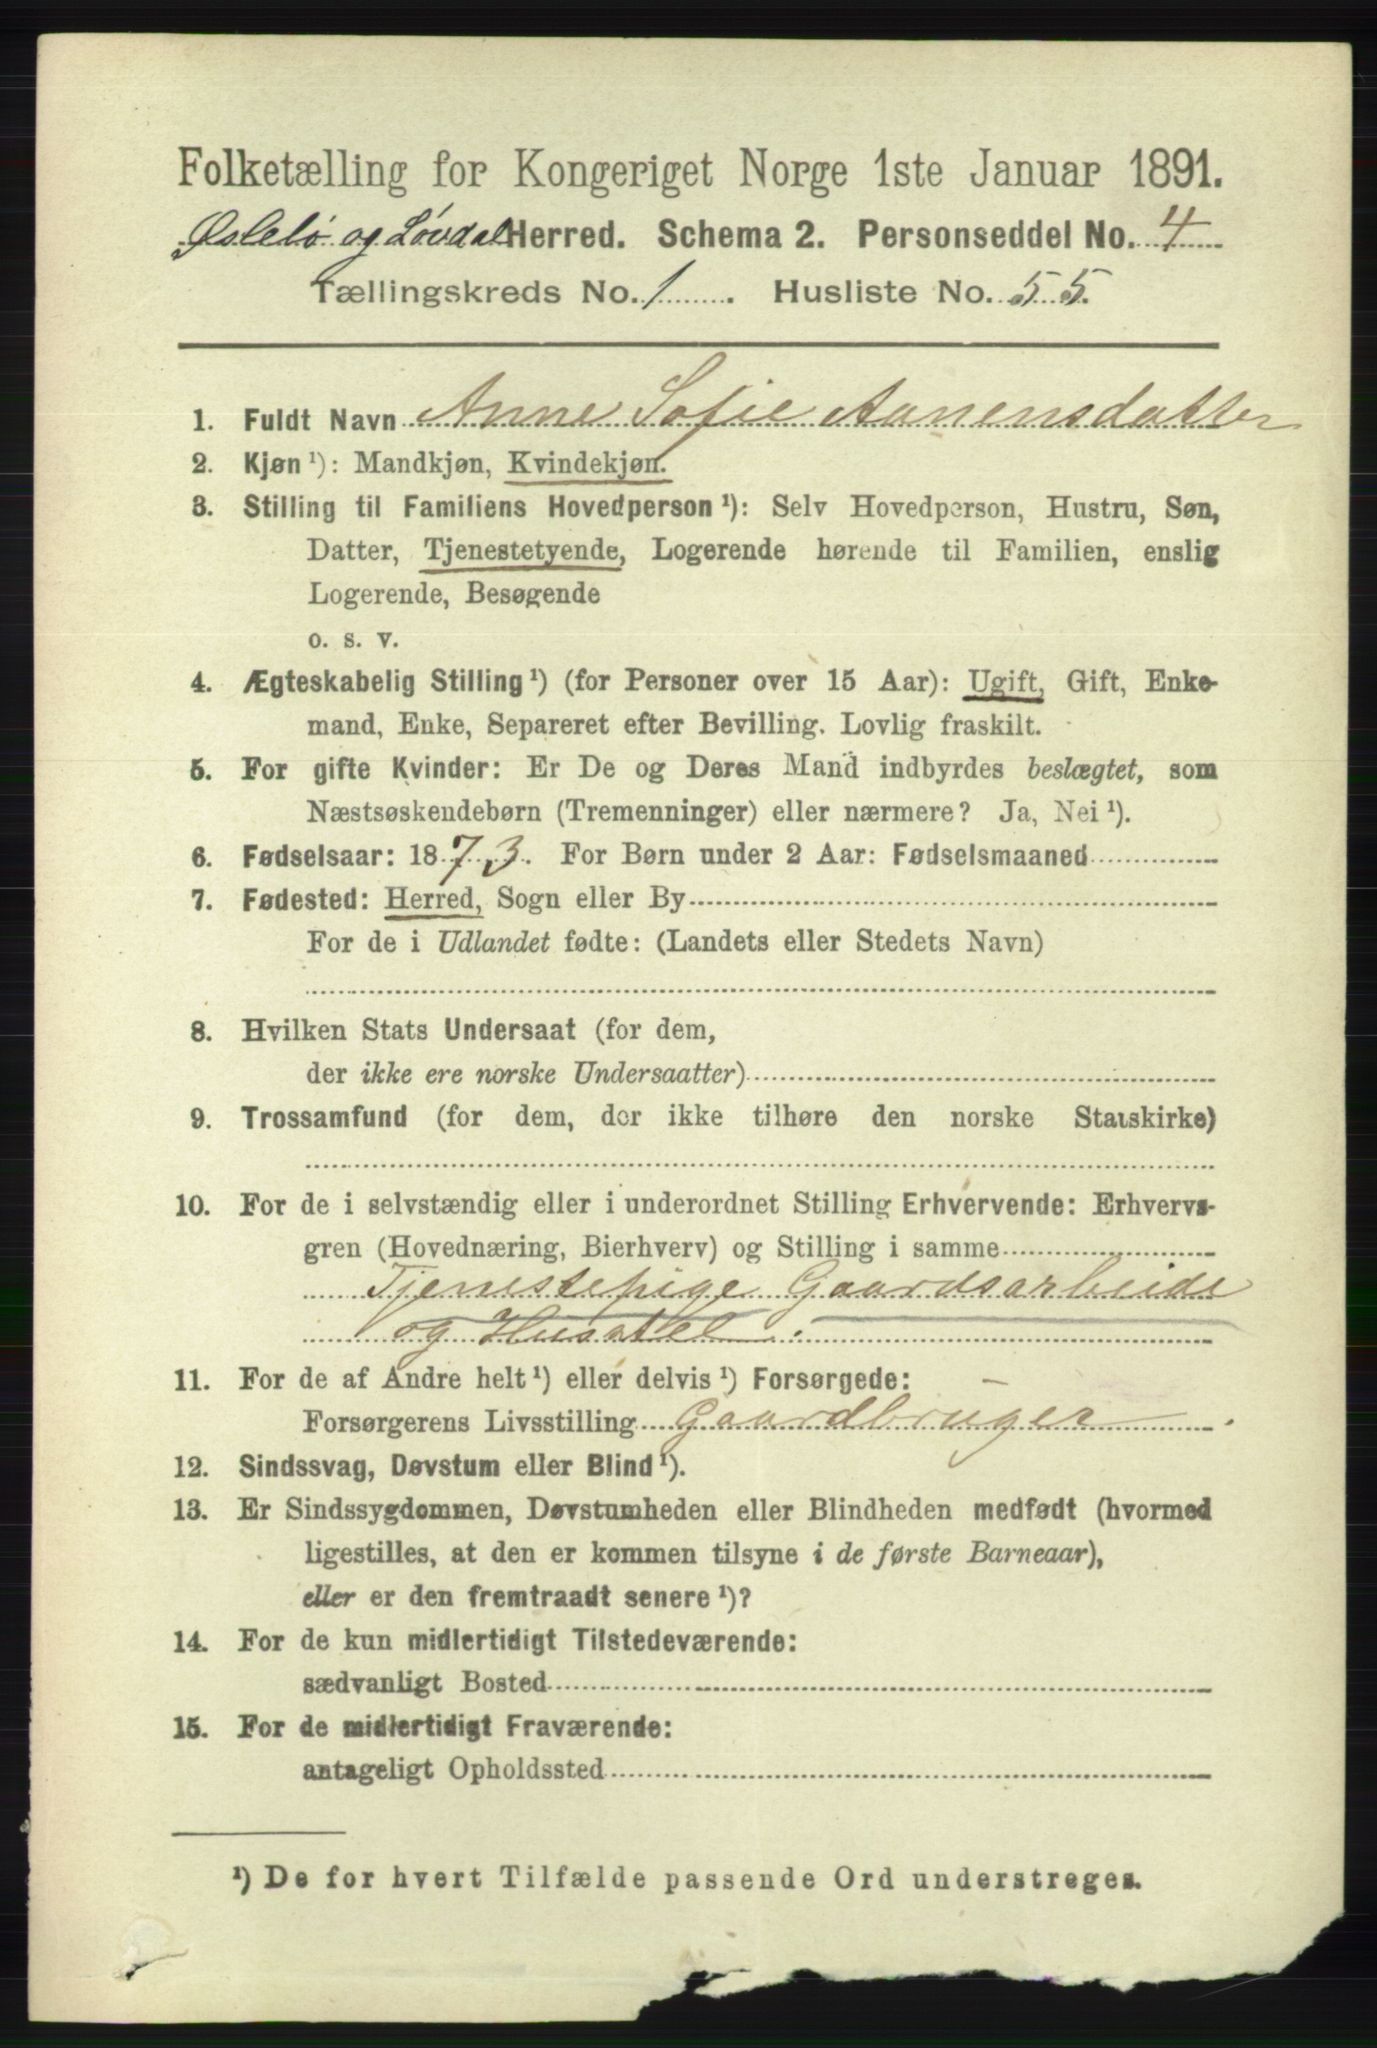 Folketælling for Kongeriget Norge 1ste Januar 1891.
Øslebø og Løvdal Herred. Schema 2. Personseddel No. 4
Tællingskreds No. 1. Husliste No. 55.
1. Fuldt Navn Anne Sofie Aanensdatter
2. Kjøn ¹): Mandkjøn, Kvindekjøn.
3. Stilling til Familiens Hovedperson ¹): Selv Hovedperson, Hustru, Søn,
Datter, Tjenestetyende, Logerende hørende til Familien, enslig
Logerende, Besøgende
o. s. v.
4. Ægteskabelig Stilling ¹) (for Personer over 15 Aar): Ugift, Gift, Enke-
mand, Enke, Separeret efter Bevilling. Lovlig fraskilt.
5. For gifte Kvinder: Er De og Deres Mand indbyrdes beslægtet, som
Næstsøskendebørn (Tremenninger) eller nærmere? Ja, Nei ¹).
6. Fødselsaar: 1873. For Børn under 2 Aar: Fødselsmaaned
7. Fødested: Herred, Sogn eller By
For de i Udlandet fødte: (Landets eller Stedets Navn)
8. Hvilken Stats Undersaat (for dem,
der ikke ere norske Undersaatter)
9. Trossamfund (for dem, der ikke tilhøre den norske Statskirke)
10. For de i selvstændig eller i underordnet Stilling Erhvervende: Erhvervs-
gren (Hovednæring, Bierhverv) og Stilling i samme
Tjenestepige Gaardsarbeide
og Husstel.
11. For de af Andre helt ¹) eller delvis ¹) Forsørgede:
Forsørgerens Livsstilling Gaardbruger.
12. Sindssvag, Døvstum eller Blind ¹).
13. Er Sindssygdommen, Døvstumheden eller Blindheden medfødt (hvormed
ligestilles, at den er kommen tilsyne i de første Barneaar),
eller er den fremtraadt senere ¹)?
14. For de kun midlertidigt Tilstedeværende:
sædvanligt Bosted
15. For de midlertidigt Fraværende:
antageligt Opholdssted
¹) De for hvert Tilfælde passende Ord understreges.